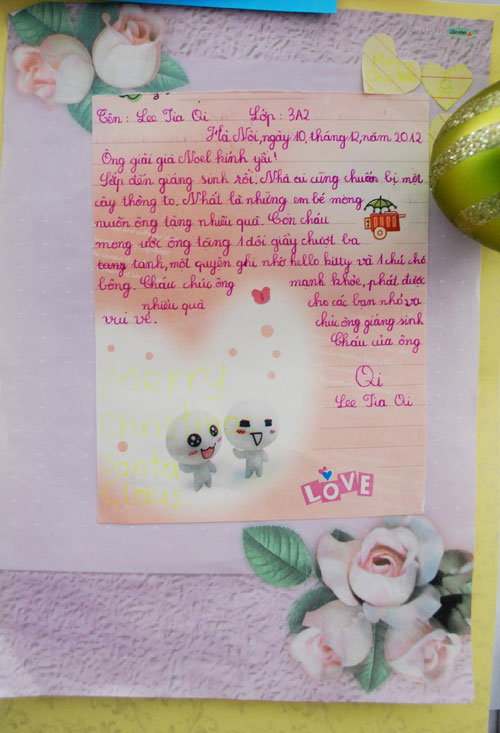 Tên: Lee Tia Qi Lớp: 3A2
Hà Nội, ngày 10, tháng 12, năm 2012
Ông giải giá Noel kính yêu!
Sắp đến giáng sinh rồi. Nhà ai cũng chuẩn bị một
cây thông to. Nhất là những em bé mong
muốn ông tặng nhiều quà. Còn cháu
mong ước ông tặng 1 đôi giầy chượt ba
tang tanh, một quyển ghi nhớ hello kitty vã 1 chú chó
bông. Cháu chúc ông mạnh khỏe, phát được
nhiều quà cho các bạn nhỏ và
vui vẻ. chúc ông giáng sinh
Cháu của ông
Qi
Lee Tia Qi
Merry
Christmas
Santa
Claus
LOVE